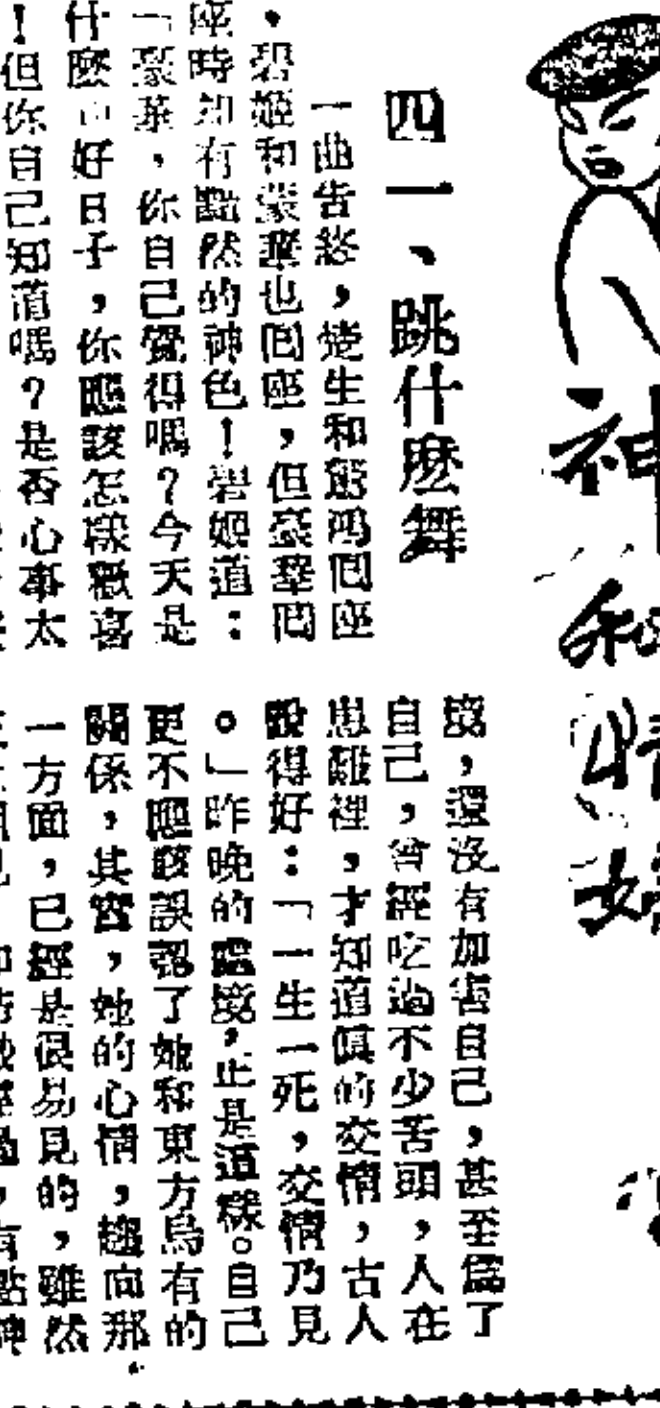 神
秘
情
四一、跳什麽舞
一曲告終，楚生和驚鴻回座
，碧姬和豪華也回座，但豪華回
座時却有黯然的神色！碧姬道：
「豪華，你自己覺得嗎？今天是
什麽　好日子，你應該怎樣歡喜
！但你自己知道嗎？是否心事太
境，還沒有加害自己，甚至爲了
自己，曾經吃過不少苦頭，人在
患難裡，才知道眞的交情，古人
說得好：「一生一死，交情乃見
。」昨晚的處境，正是這樣。自己
更不應該誤認了她和東方烏有的
關係，其實，她的心情，趨向那
一方面，已經是很易見的，雖然